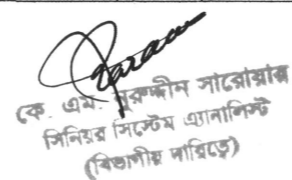 কে. এম. নুরুদ্দীন সারোয়ার
সিনিয়র সিস্টেম এ্যানালিস্ট
(বিভাগীয় দায়িত্বে)